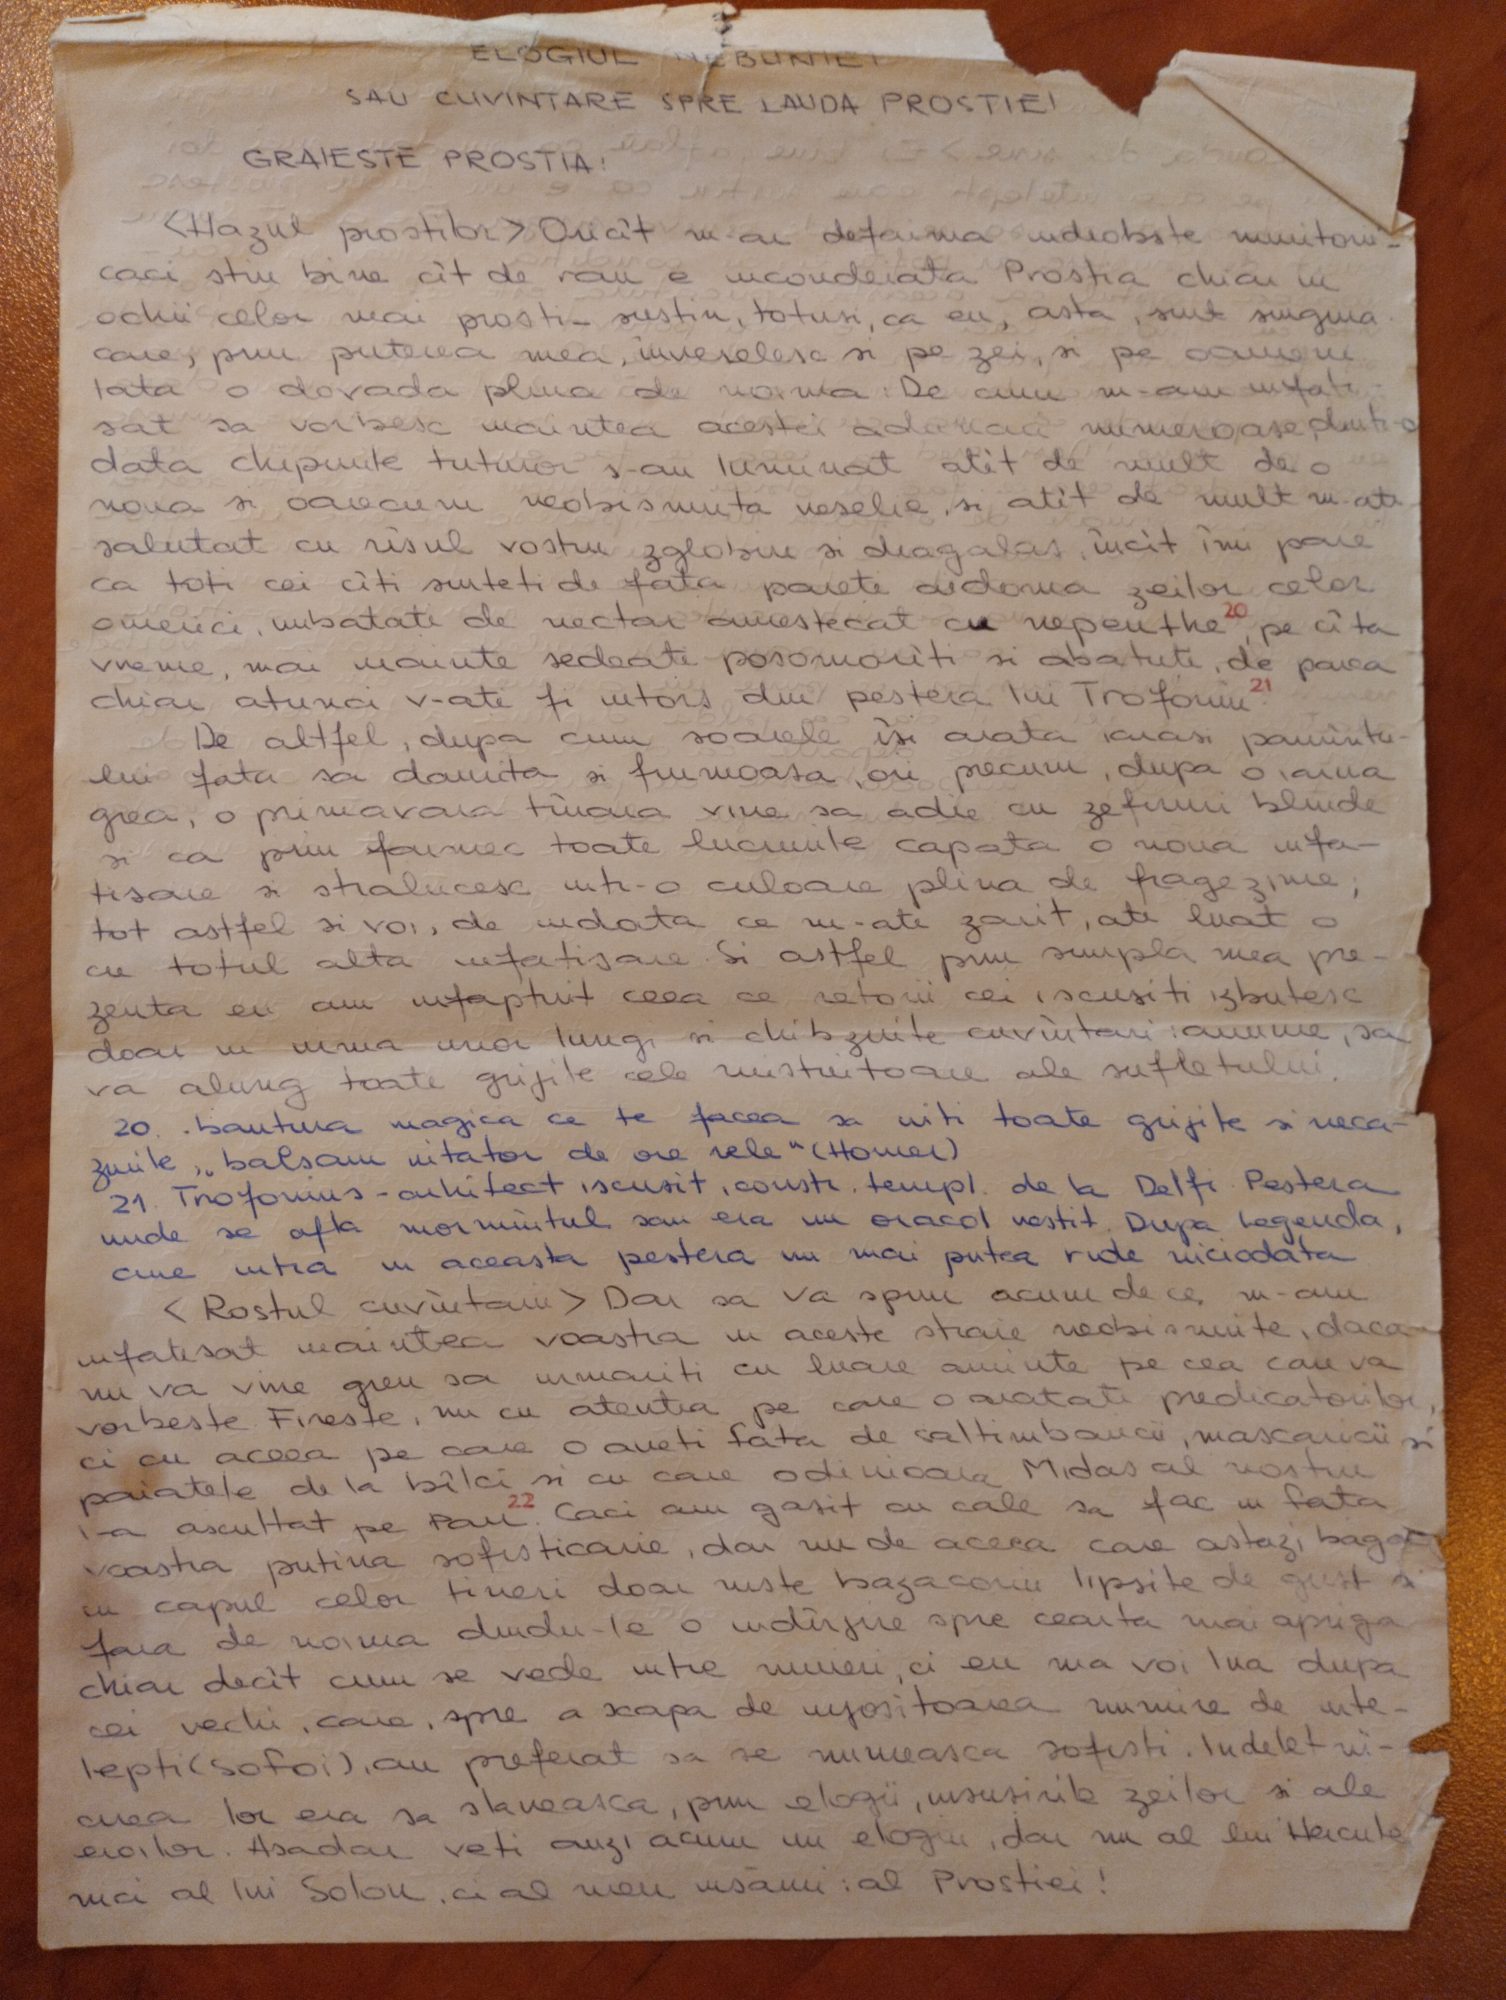 ELOGIUL NEBUNIEI
SAU CUVINTARE SPRE LAUDA PROSTIEI
GRAIESTE PROSTIA:
<Hazul prostilor> Oricît m-ar defaima indeobste muritorii-
caci stiu bine cît de rau e inconderata Prostia chiar in
ochii celor mai prosti- sustin, totusi, ca eu, asta, sint singura
care, prin puterea mea, înveselesc si pe zei, si pe oameni
Iata o dovada plina de noima: De cum m-am infati-
sat sa vorbesc inaintea acestei adunari numeroase, dintr-o
data chipurile tuturor s-au luminat atît de mult de o
noua si oarecum neobisnuita veselie, si atît de mult m-ati
salutat cu rîsul vostru zglobiu si dragalas, încît îmi pare
ca toti cei cîti sinteti de fata parete aidoma zeilor celor
omerici, imbatati de nectar amestecat cu nepenthe 20, pe cîta
vreme, mai inainte sedeate posomorîti si abatuti, de parea
chiar atunci v-ati fi intors din pestera lui Trofoniu 21
De altfel, dupa cum soarele îsi arata iarasi pamîntu-
lui fata sa daurita si frumoasa, ori precum, dupa o iarna
grea, o primavara tînara vine sa adie cu zefiruri blinde
si ca prin farmec toate lucrurile capata o noua infa-
tisare si stralucesc intr-o culoare plina de fragezime;
tot astfel si voi, de indata ce m-ati zarit, ati luat o
cu totul alta infatisare. Si astfel prin simpla mea pre-
zenta eu am infaptuit ceea ce retorii cei iscusiti izbutesc
doar in urma unor lungi si chibzuite cuvîntari: anume, sa
va alung toate grijile cele mistuitoare ale sufletului.
20. bautura magica ce te facea sa uiti toate grijile si neca-
zurile, „balsam uitator de ore rele" (Homer)
21. Trofonius - arhitect iscusit, constr. templ. de la Delfi. Pestera
unde se afla mormîntul sau era un oracol vestit. Dupa legenda,
cine intra in aceasta pestera nu mai putea ride niciodata
<Rostul cuvîntarii> Dar sa va spun acum de ce m-am
infatisat inaintea voastra in aceste straie neobisnuite, daca
nu va vine greu sa urmariti cu luare aminte pe cea care va
vorbeste. Fireste, nu cu atentia pe care o aratati predicatorilor,
ci cu aceea pe care o aveti fata de saltimbancii, mascaricii si
paiatele de la bîlci si cu care odinioara Midas al nostru
l-a ascultat pe Pan 22. Caci am gasit cu cale sa fac in fata
voastra putina sofisticarie, dar nu de aceea care astazi baga
in capul celor tineri doar niste bazaconii lipsite de gust si
fara de noima dindu-le o indîrjire spre cearta mai apriga
chiar decît cum se vede intre muieri, ci eu ma voi lua dupa
cei vechi, care, spre a scapa de injositoarea numire de inte-
lepti (sofoi), au preferat sa se numeasca sofisti. Indeletni-
cirea lor era sa slaveasca, prin elogii, insusirile zeilor si ale
eroilor. Asadar veti auzi acum un elogiu, dar nu al lui Hercule
nici al lui Solon, ci al meu însami: al Prostiei!